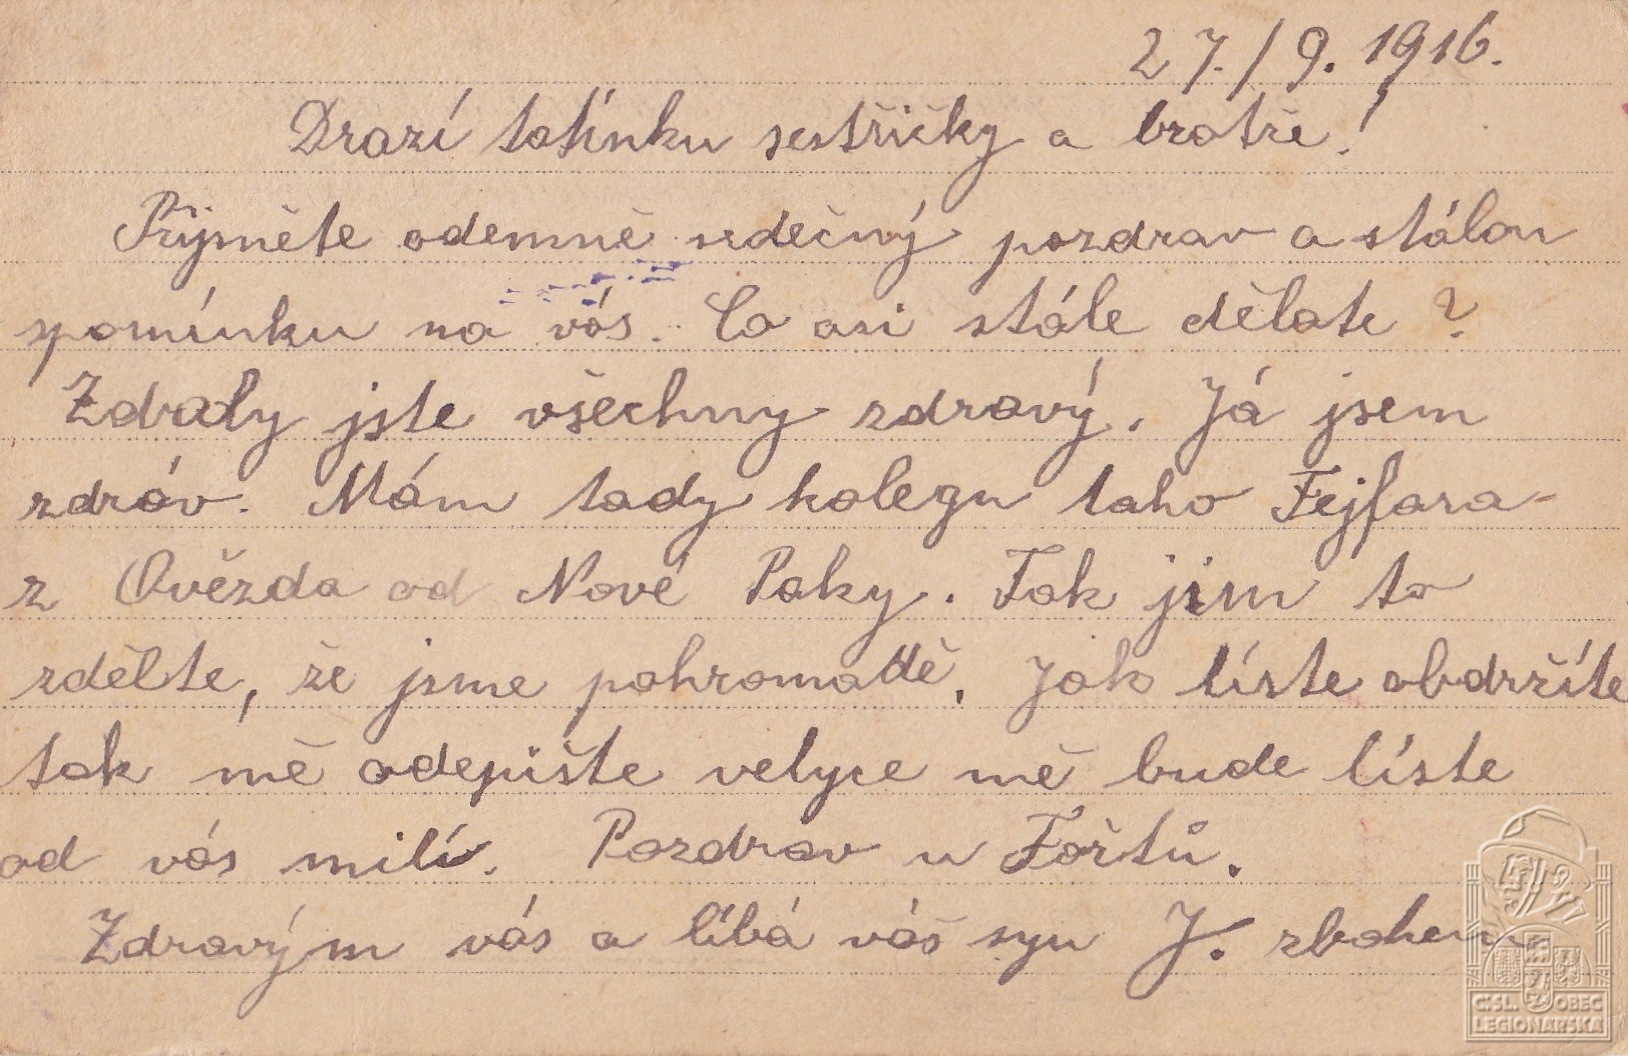 27./9. 1916.
Drazí tatínku sestřičky a bratře!
Přijměte odemně srdečný pozdrav a stálou
spomínku na vás. Co asi stále děláte ?
Zdraly jste všechny zdravý. Já jsem
zdráv. Mám tady kolegu taho Fejfara
z Ovězda od Nové Paky. Tak jim to
zdělte, že jsme pohromadě. Jak líste obdržíte
tak mě odepište velyce mě bude líste
od vás milí. Pozdrav u Fořtů.
Zdravým vás a líbá váš syn J. zbohem
Č.SL. OBEC
LEGIONÁŘSKÁ